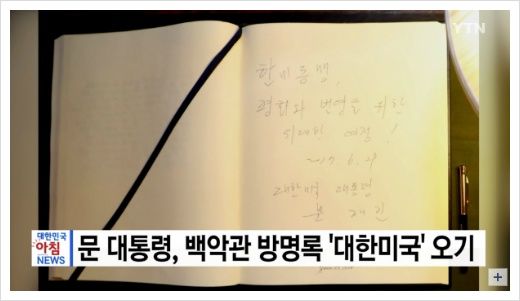 YTN
한미동맹,
평화와 번영을 위한
위대한 여정!
2017. 6. 29
대한미국 대통령
문 재 인
대한민국
아침
NEWS
문 대통령, 백악관 방명록 '대한미국' 오기